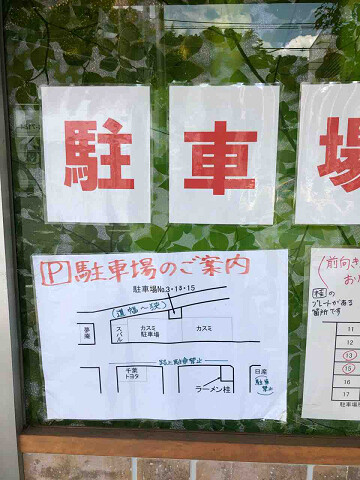 駐
車
場
P 駐車場のご案内
駐車場No.3・13・15
(道幅〜狭)
夢庵
スバル
カスミ
駐車場
カスミ
路上駐車禁止
千葉
トヨタ
ラーメン桂
日産
駐車
禁止
(前向き
お
桂の
プレートがある
箇所です
11
12
13
15
16
17
駐車場